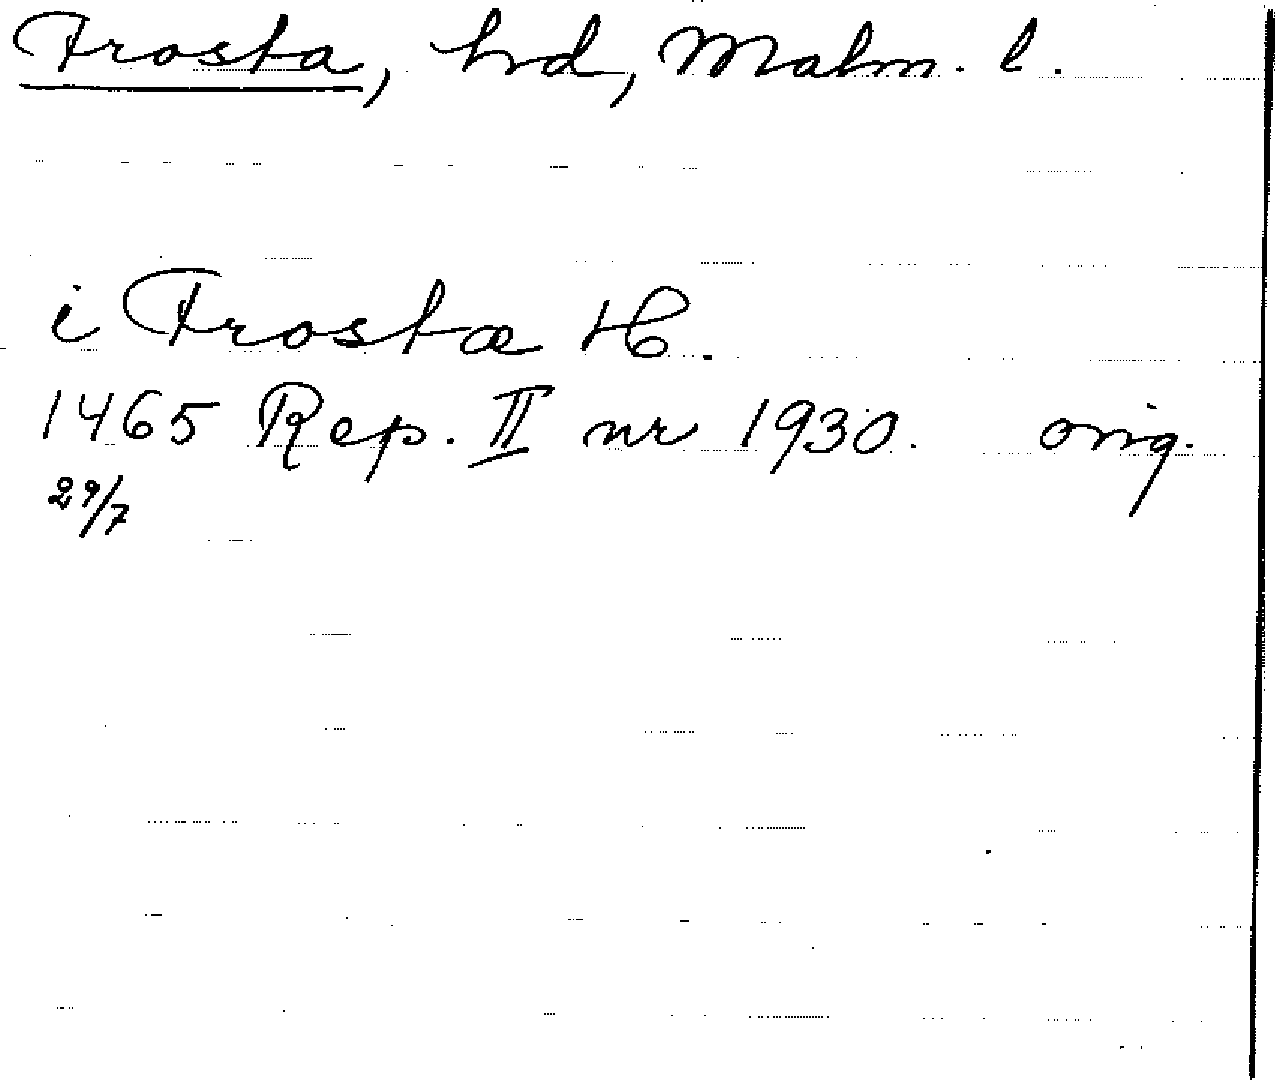 Frosta, hd, Malm. l.
i Frostæ H.
1465 Rep. II nr 1930. orig.
29/7